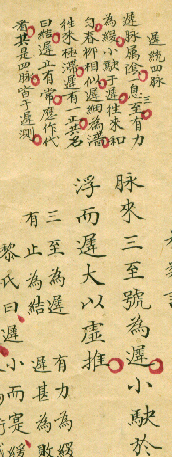 遲統四脉
遲脉屬陰一息三至有力
為緩小駃于遲徃來和
勻春柳相似遲細為濇
徃來極滯遲有一止其名
曰結遲止有常應作代
是四脉
于遲測
脉來三至號為遲小駃於
浮而遲大以虛推
三至為遲 有力為緩
有止為結 遲甚為敗
黎氏曰遲小而寔緩